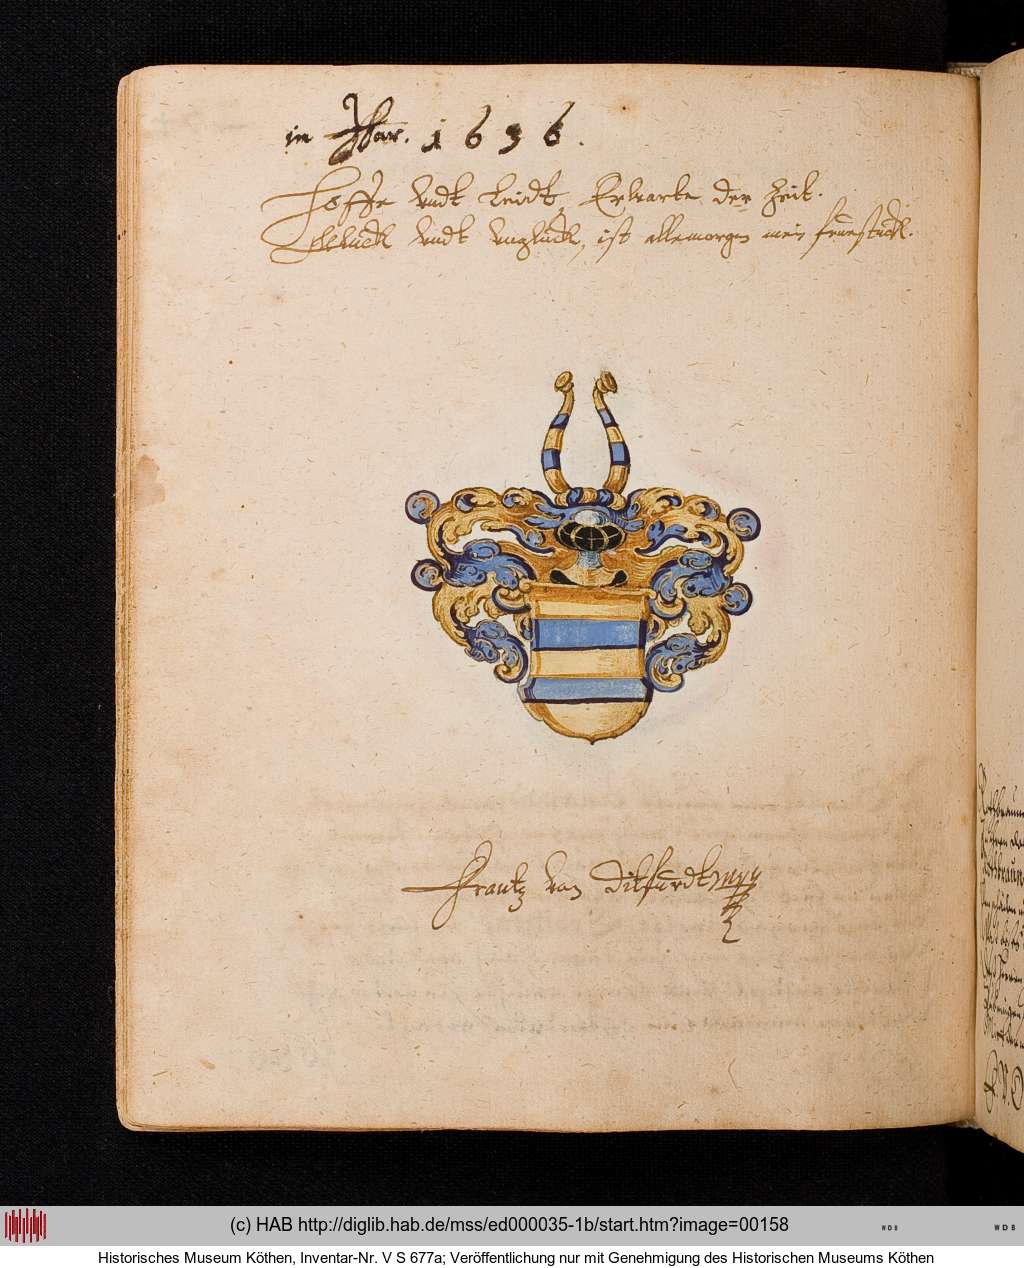 im Mar. 1636.
Hoffe undt leidt, Erwarte der Zeit.
Glück undt unglück, ist allemorgen mein fruestück.
Frantz von Ditfurdt mpp
(c) HAB http://diglib.hab.de/mss/ed000035-1b/start.htm?image=00158
WDB
WDB
Historisches Museum Köthen, Inventar-Nr. V S 677a; Veröffentlichung nur mit Genehmigung des Historischen Museums Köthen